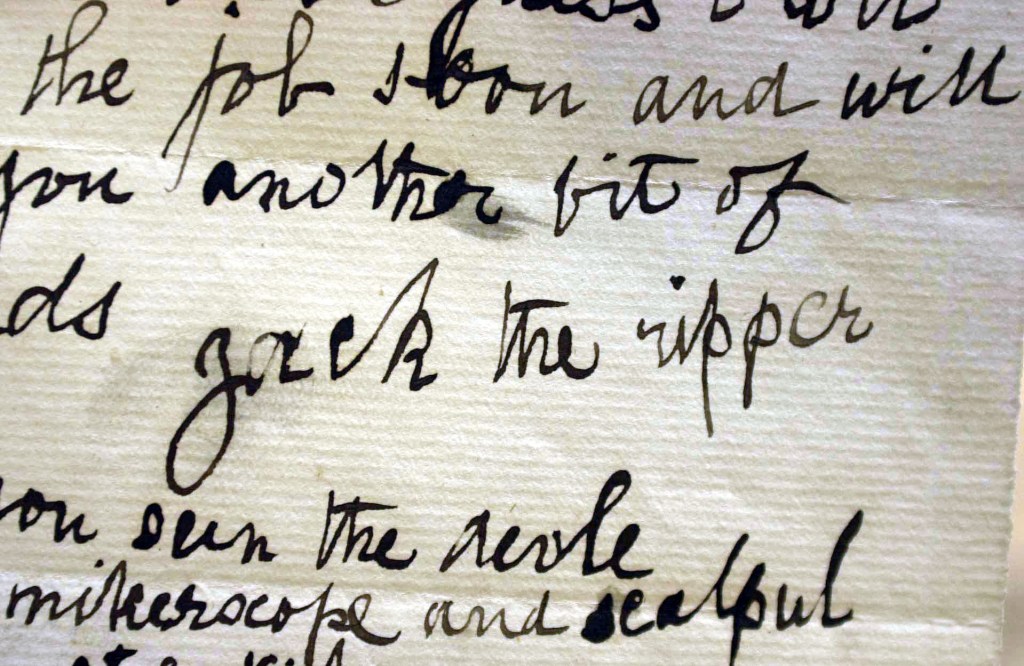 the job soon and will
you another bit of
ds
Jack the ripper
you seen the devle
mikerscope and scalpul